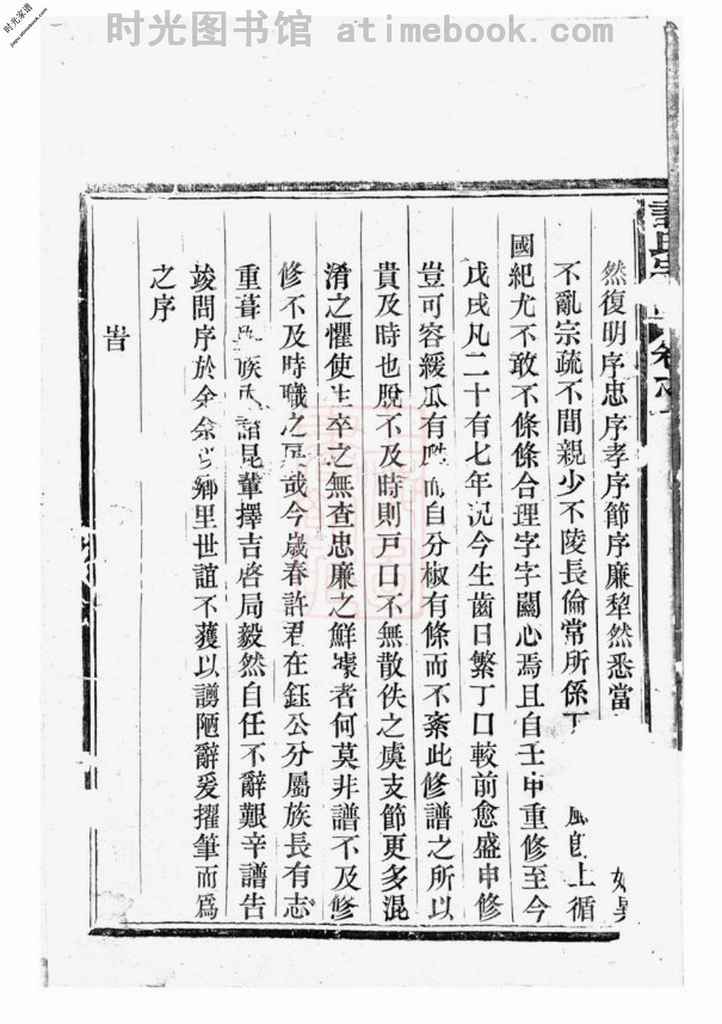 时光图书馆 atimebook.com
时光家谱
氏
卷
然復明序忠序孝序節序廉犂然悉當
不亂宗疏不間親少不陵長倫常所係 上循
國紀尤不敢不條條合理字字關心焉且自壬申重修至今
戊戌凡二十有七年況今生齒日繁丁口較前愈盛申修
豈可容緩瓜有 而自分椒有條而不紊此修譜之所以
貴及時也脫不及時則戸口不無散佚之虞支節更多混
淆之懼使生卒之無查忠廉之鮮據者何莫非譜不及修
修不及時職之 哉今歲春許君在鈺公分屬族長有志
重葺 族 昆輩擇吉啓局毅然自任不辭艱辛譜告
竣問序於余余 鄉里世誼不獲以謭陋辭爰擢筆而爲
之序
旹